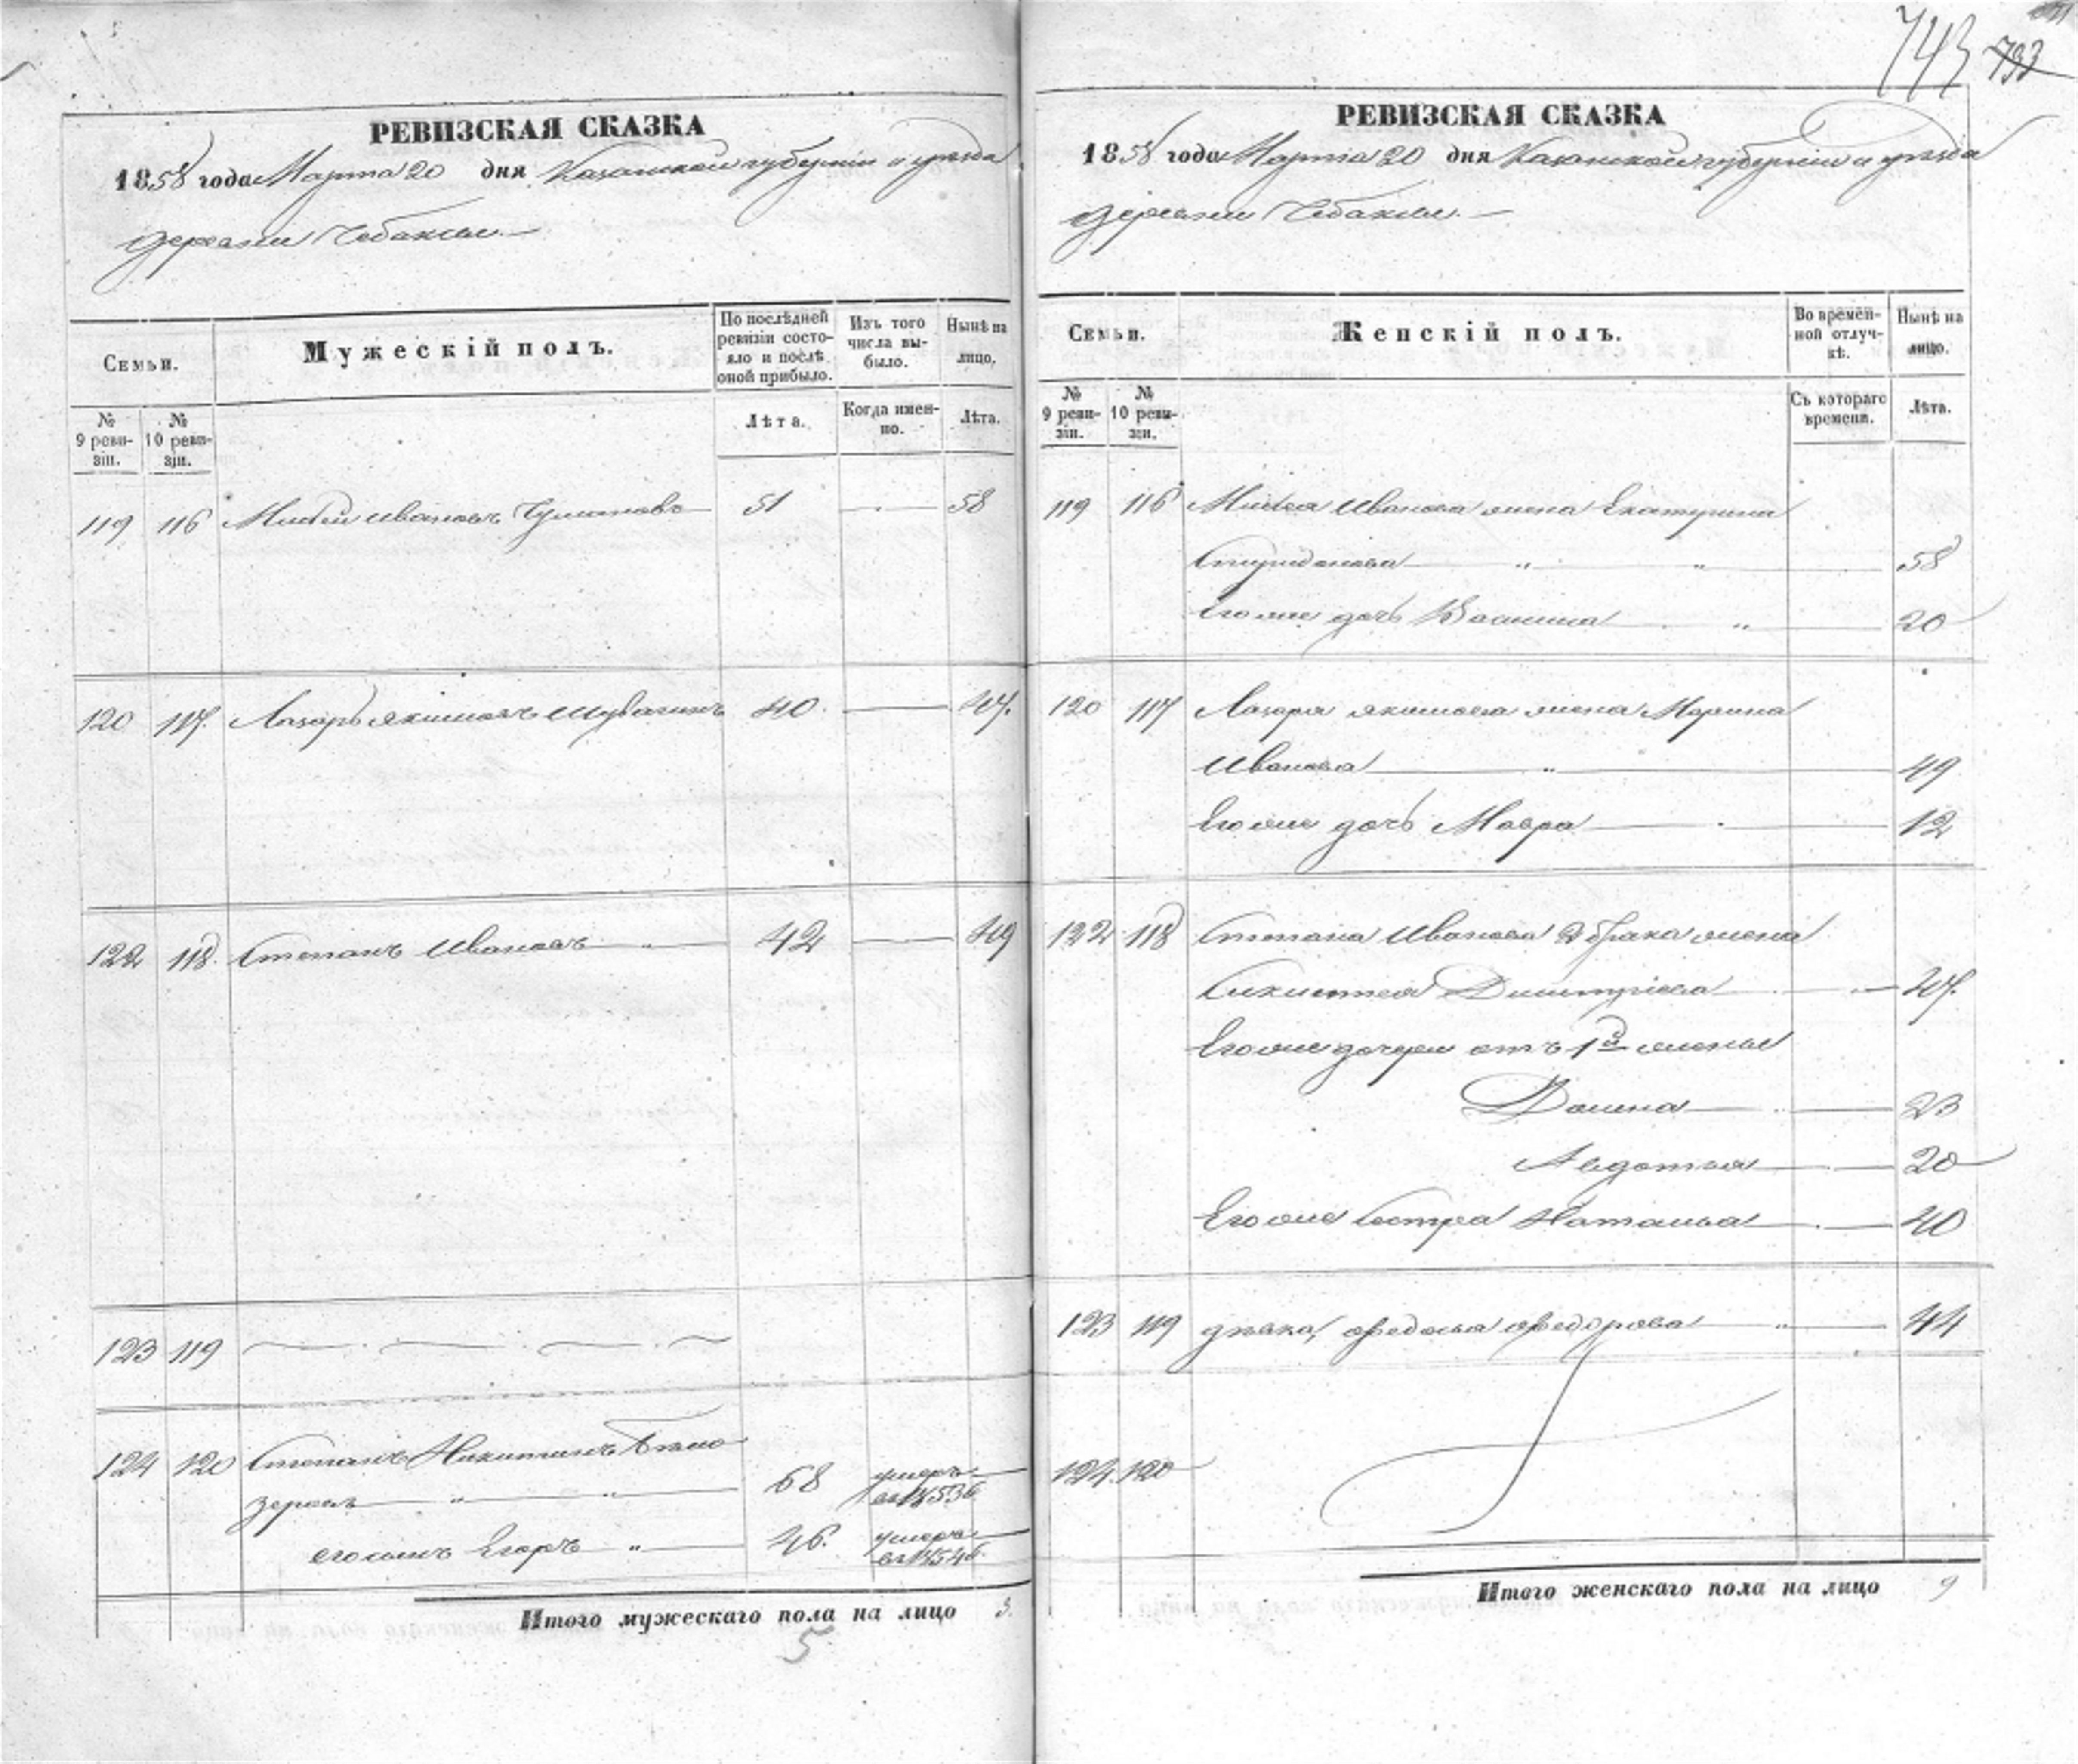 743 793
РЕВИЗСКАЯ СКАЗКА
1858 года Марта 20 дня Казанской губерніи и уѣзда
деревни Чебаксы.
Семьи.
Мужескій полъ.
По послѣдней ревизіи состояло и послѣ оной прибыло.
Изъ того числа выбыло.
Нынѣ на лицо.
№ 9 ревизіи.
№ 10 ревизіи.
Лѣта.
Когда именно.
Лѣта.
119 116 Ивановъ 51 — 58
120 117. Лазарь Якимовъ 40. — 47.
122 118. Степанъ Ивановъ „ 42 — 49
123 119
124 120 Степанъ Никитинъ Бѣло
зеровъ „ „ 68 умеръ въ 1853 г.
его сынъ Егоръ „ 46. умеръ въ 1854 г.
Итого мужескаго пола на лицо 3.
5
РЕВИЗСКАЯ СКАЗКА
1858 года Марта 20 дня Казанской губерніи и уѣзда
деревни Чебаксы.
Семьи.
Женскій полъ.
Во временной отлучкѣ.
Нынѣ на лицо.
№ 9 ревизіи.
№ 10 ревизіи.
Съ котораго времени.
Лѣта.
119 116 Иванова жена Екатерина
Спиридонова „ „ 58
Его же дочь „ 20
120 117 Лазаря Якимова жена Марина
Иванова „ 49
Его же дочь Мавра 12
122 118 Степана Иванова 2 брака жена
Димитріева 47.
Его же дочери отъ 1й жены
Домна 23
Авдотья 20
Его же сестра Наталья 40
123 119 дѣвка, Федосья Федорова „ 44
124. 120
Итого женскаго пола на лицо 9